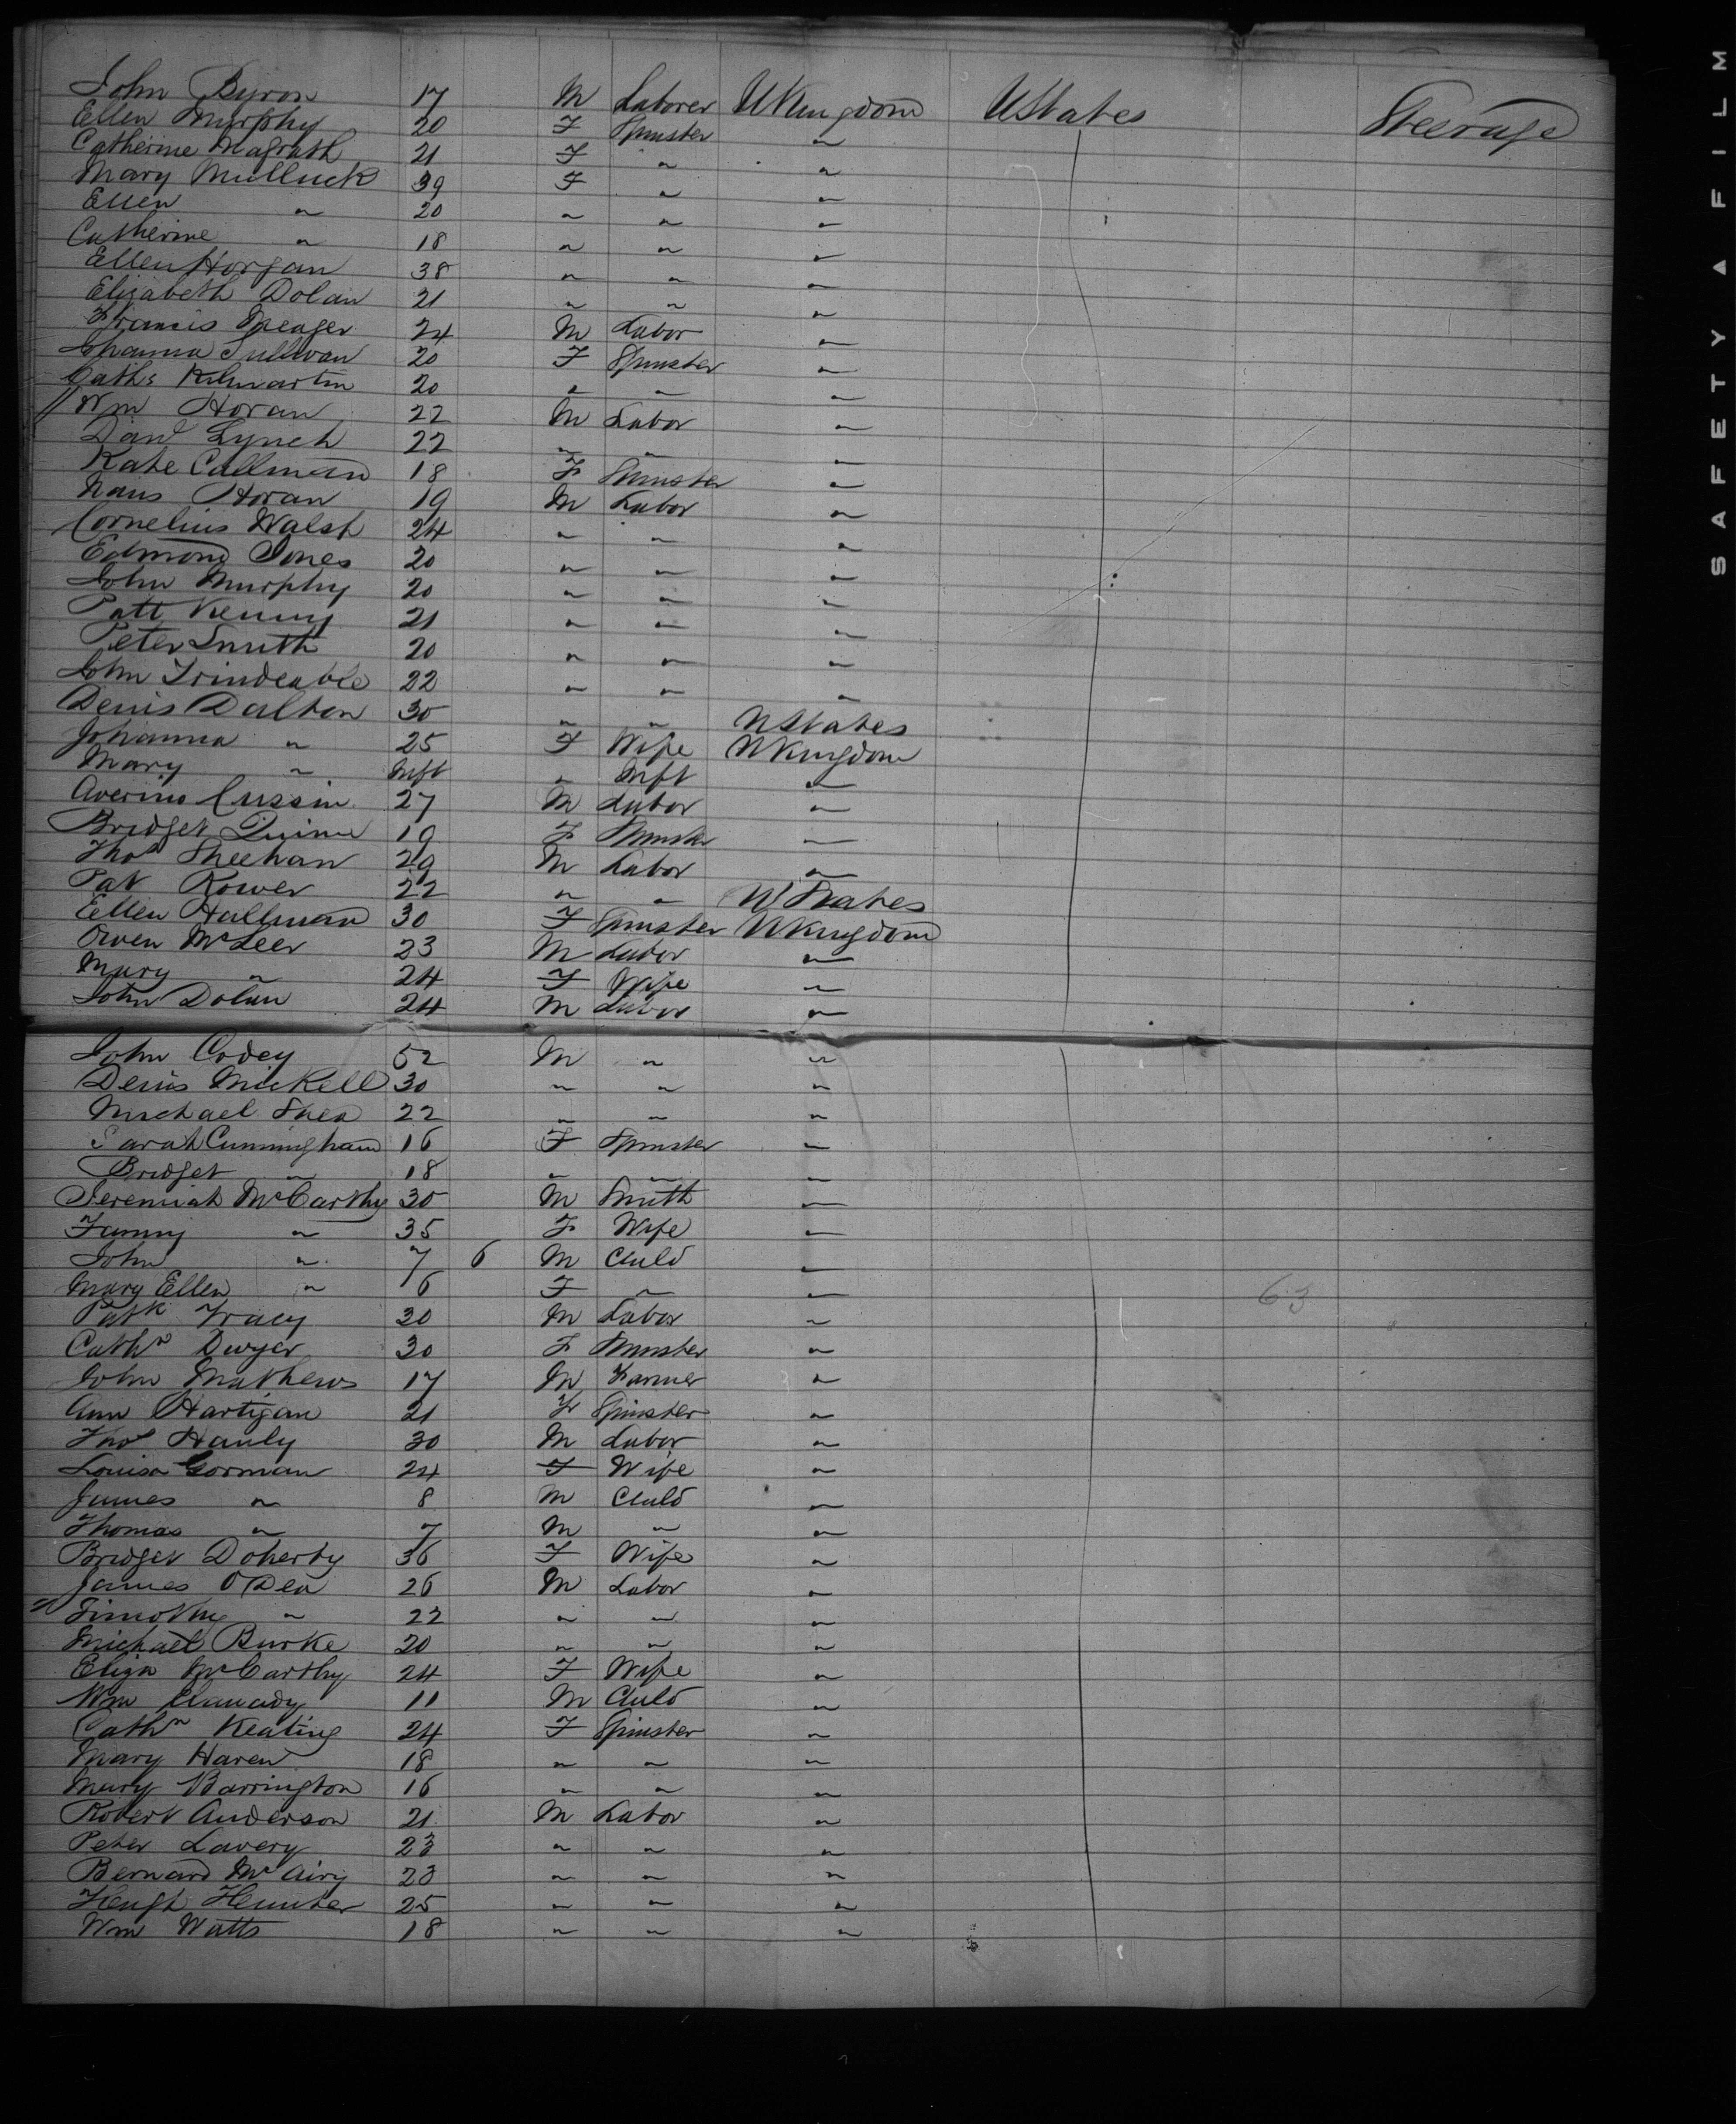 John Byron 17 M Laborer UKingdom UStates Steerage
Ellen Murphy 20 F Spinster "
Catherine Magrath 21 F " "
Mary Mulluck 39 F " "
Ellen " 20 " " "
Catherine " 18 " " "
Ellen Horgan 38 " " "
Elizabeth Dolan 21 " " "
Francis Meager 24 M Labor "
Johanna Sullivan 20 F Spinster "
Cath: Kilmartin 20 " " "
Wm Horan 22 M Labor "
Dan'l Lynch 22 " " "
Kate Callman 18 F Spinster "
Hans Horan 19 M Labor "
Cornelius Walsh 24 " " "
Edmond Jones 20 " " "
John Murphy 20 " " "
Patt Kenny 21 " " "
Peter Smith 20 " " "
John 22 " " "
Denis Dalton 30 " " UStates
Johanna " 25 F Wife UKingdom
Mary " Inft " Inft "
27 M Labor "
Bridget Quinn 19 F Spinster "
Thos Sheehan 29 M Labor "
Pat Rower 22 " " UStates
Ellen Hallman 30 F Spinster UKingdom
Owen McLeer 23 M Labor "
Mary " 24 F Wife "
John Dolan 24 M Labor "
John Codey 52 M " "
Denis Mickell 30 " " "
Michael Shea 22 " " "
Sarah Cunningham 16 F Spinster "
Bridget " 18 " " "
Jeremiah McCarthy 30 M Smith "
Fanny " 35 F Wife "
John " 7 6 M Child "
Mary Ellen " 6 F " " 63
Patk Tracy 30 M Labor "
Cathn Dwyer 30 F Spinster "
John Mathews 17 M Farmer "
Ann Hartigan 21 F Spinster "
Thos Hanly 30 M Labor "
Louisa Gorman 24 F Wife "
James " 8 M Child "
Thomas " 7 M " "
Bridget Doherty 36 F Wife "
James O'Dea 26 M Labor "
Timothy " 22 " " "
Michael Burke 20 " " "
Eliza McCarthy 24 F Wife "
Wm 11 M Child "
Cathn Keating 24 F Spinster "
Mary Haren 18 " " "
Mary Barrington 16 " " "
Robert Anderson 21 M Labor "
Peter Lavery 23 " " "
Bernard McAiry 23 " " "
Hugh Hunter 25 " " "
Wm Watts 18 " " "
SAFETY A FILM